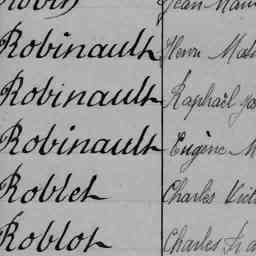 Robin Jean
Robinault Henri
Robinault Raphaël
Robinault Eugène M
Roblet Charles Vict
Roblot Charles Fra